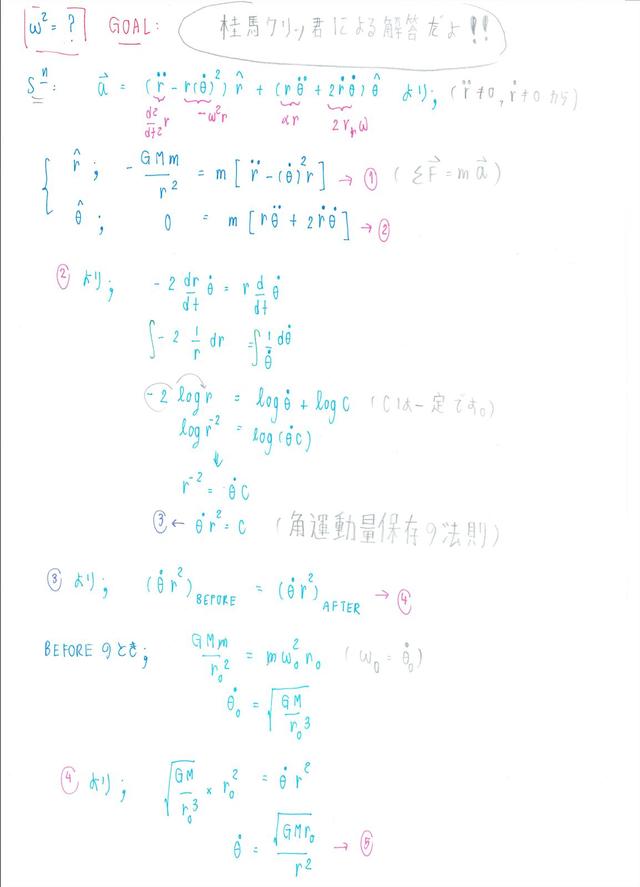 ω² = ? GOAL: 桂馬クリン君による解答だよ!!
Sⁿ: a⃗ = (r̈ - r(θ̇)²) r̂ + (rθ̈ + 2ṙθ̇) θ̂ より; (r̈≠0, ṙ≠0 から)
d²/dt² r -ω²r αr 2vᵣω
r̂; - GMm/r² = m [r̈ - (θ̇)² r] → ① (ΣF⃗ = ma⃗)
θ̂; 0 = m [rθ̈ + 2ṙθ̇] → ②
② より; -2 dr/dt θ̇ = r d/dt θ̇
∫-2 1/r dr = ∫1/θ̇ dθ̇
-2 log r = log θ̇ + log C (Cは一定です。)
log r⁻² = log(θ̇C)
↓
r⁻² = θ̇ C
③ ← θ̇ r² = C (角運動量保存の法則)
③ より; (θ̇ r²) BEFORE = (θ̇ r²) AFTER → ④
BEFOREのとき; GMm/r₀² = mω₀² r₀ (ω₀ = θ̇₀)
θ̇₀ = √(GM/r₀³)
④ より; √(GM/r₀³) × r₀² = θ̇ r²
θ̇ = √(GMr₀)/r² → ⑤